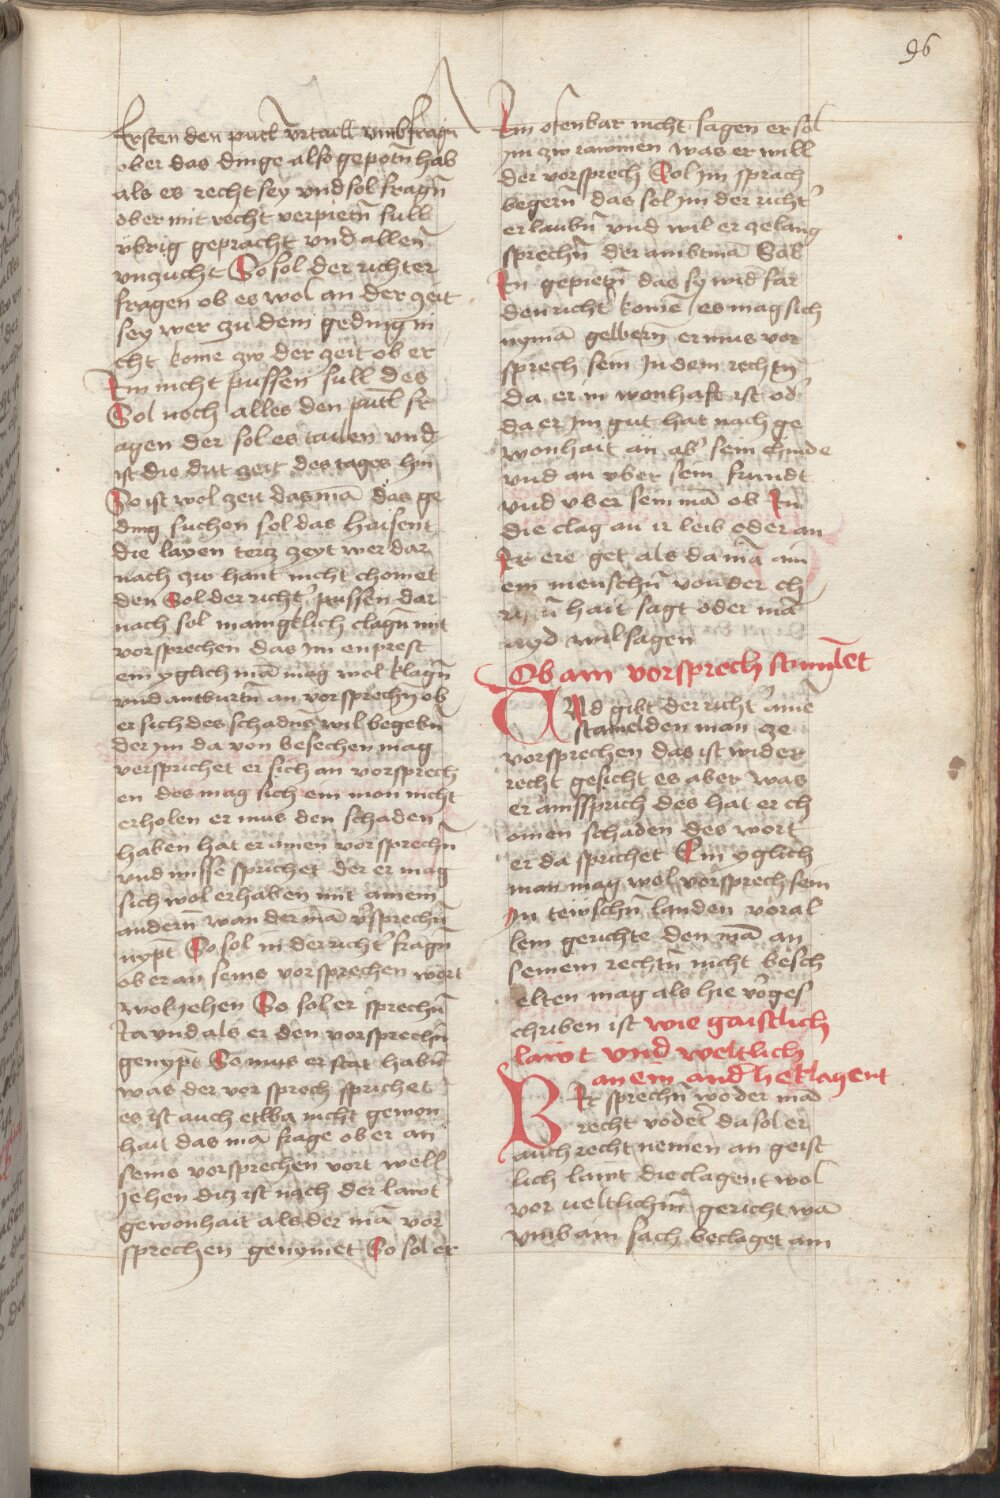 96
Ersten den putl vrtaill vmbfragn
ober das dinge also gepotn hab
als es recht sey vnd sol fragn̄
ober mit recht verpietn̄ sull
vbrig gepracht vnd allen̄
vnzucht So sol der richter
fragen ob es wol an der zeit
sey wer zu dem geding ni
cht kome zw der zeit ob er
Im nicht pussen sull des
Sol noch alles den putl fr
agen der sol es tailen vnd
ist die drit zeit des tages hin
So ist wol zeit das mā das ge
ding suchen sol das haisent
die layen tertz zeyt wer dar
nach zw hant nicht chomet
den Sol der richt' pussen dar
nach sol mainigklich clagn̄ mit
vorsprechen das im enprest
ein yglich mā mag wol klagn̄
vnd antburtn̄ an vorsprechn̄ ob
er sich des schadn̄s wil begebn̄
der im da von besechen mag
versprichet er sich an vorsprech
en des mag sich ein mon nicht
erholen er mus den schaden
haben hat er ainen vorsprechn̄
vnd misse sprichet der er mag
sich wol erhaben mit ainem
andern̄ wan der mā v'sprechn̄
nypt So sol in der richt' fragn̄
ob er an seins vorsprechen wort
wol jehen So sol er sprechn̄
Ia vnd als er den vorsprechn̄
genypt So mus er stat habn̄
was der vor sprech sprichet
es ist auch etlba nicht gewon
hait das mā frage ob er an
seins vorsprechen vort well
Jehen ditz ist nach der lawt
gewonhait als der mā vor
sprechen genymet So sol er
Im ofenbar nicht sagen er sol
im zw rawmen was er will
der vorsprech Sol im sprach
begern̄ das sol im der richt'
erlaubn̄ vnd wil er zelang
sprechn̄ der ambtmā Sol
In gepietn̄ das sy wid' far
den richt' komē es mag sich
nymā gelbern̄ er mus vor
sprech sein In dem rechtn̄
da er in wonhaft ist od'
da er Im gut hat nach ge
wonhait an ab' sein chinde
vnd an vber sein frundt
vnd vber sein mā ob In
die clag an ir leib oder an
Ir ere get als da mā ain
em menschn̄ von der ch
hait sagt oder mā
wil sagen
Ob ain vorsprech stamlet
Vnd gibt der richt' ainē
stamelden man ze
vorsprechen das ist wider
recht gesicht es aber was
er ainsssprich des hat er ch
ainen schaden des wort
er da sprichet Ein yglich
man mag wol vorsprech sein
In tewschn̄ landen voral
lem gerichte den mā an
seinem rechtn̄ nicht besch
elten mag als hie vorges
chriben ist wie gaistlich
lawt vnd weltlich
an ein and' beklagent
Bir sprechn̄ wo der man
recht voder̄t da sol er
auch recht nemen an geist
lich lawt die clagent wol
vor weltlichm̄ gericht wā
vmb ain sach beclaget ain